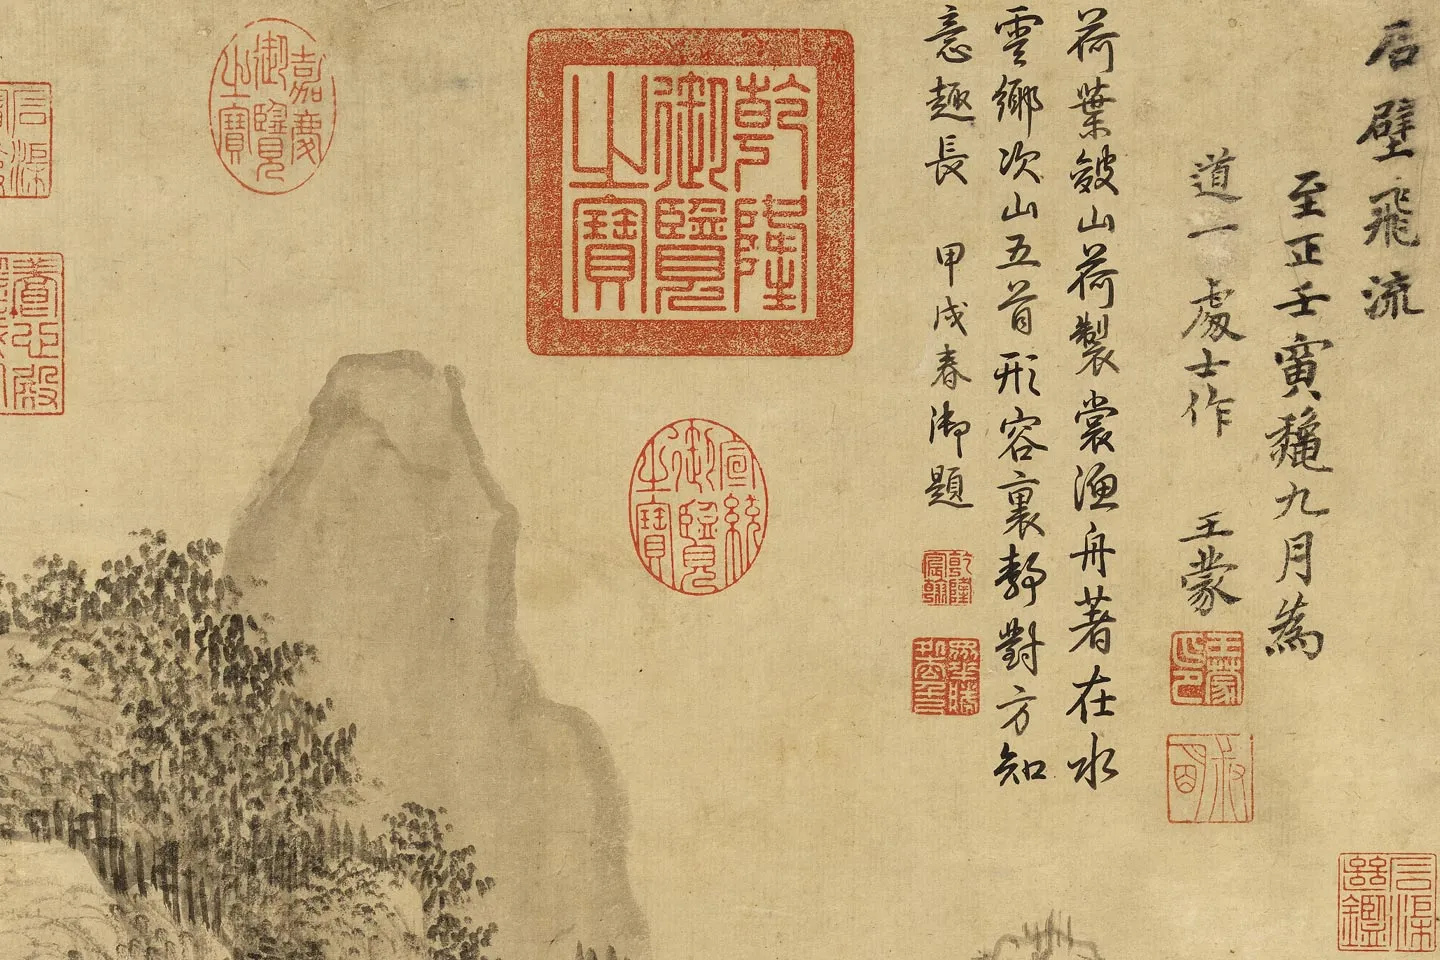 石壁飛流
至正壬寅龝九月為
道一處士作
王蒙
王蒙印
荷葉皴山荷製裳漁舟著在水
雲鄉次山五首形容裏靜對方知
意趣長
甲戌春御題
乾隆宸翰
乾隆御覽之寶
宣統御覽之寶
嘉慶御覽之寶
石渠寶笈
養心殿鑑藏